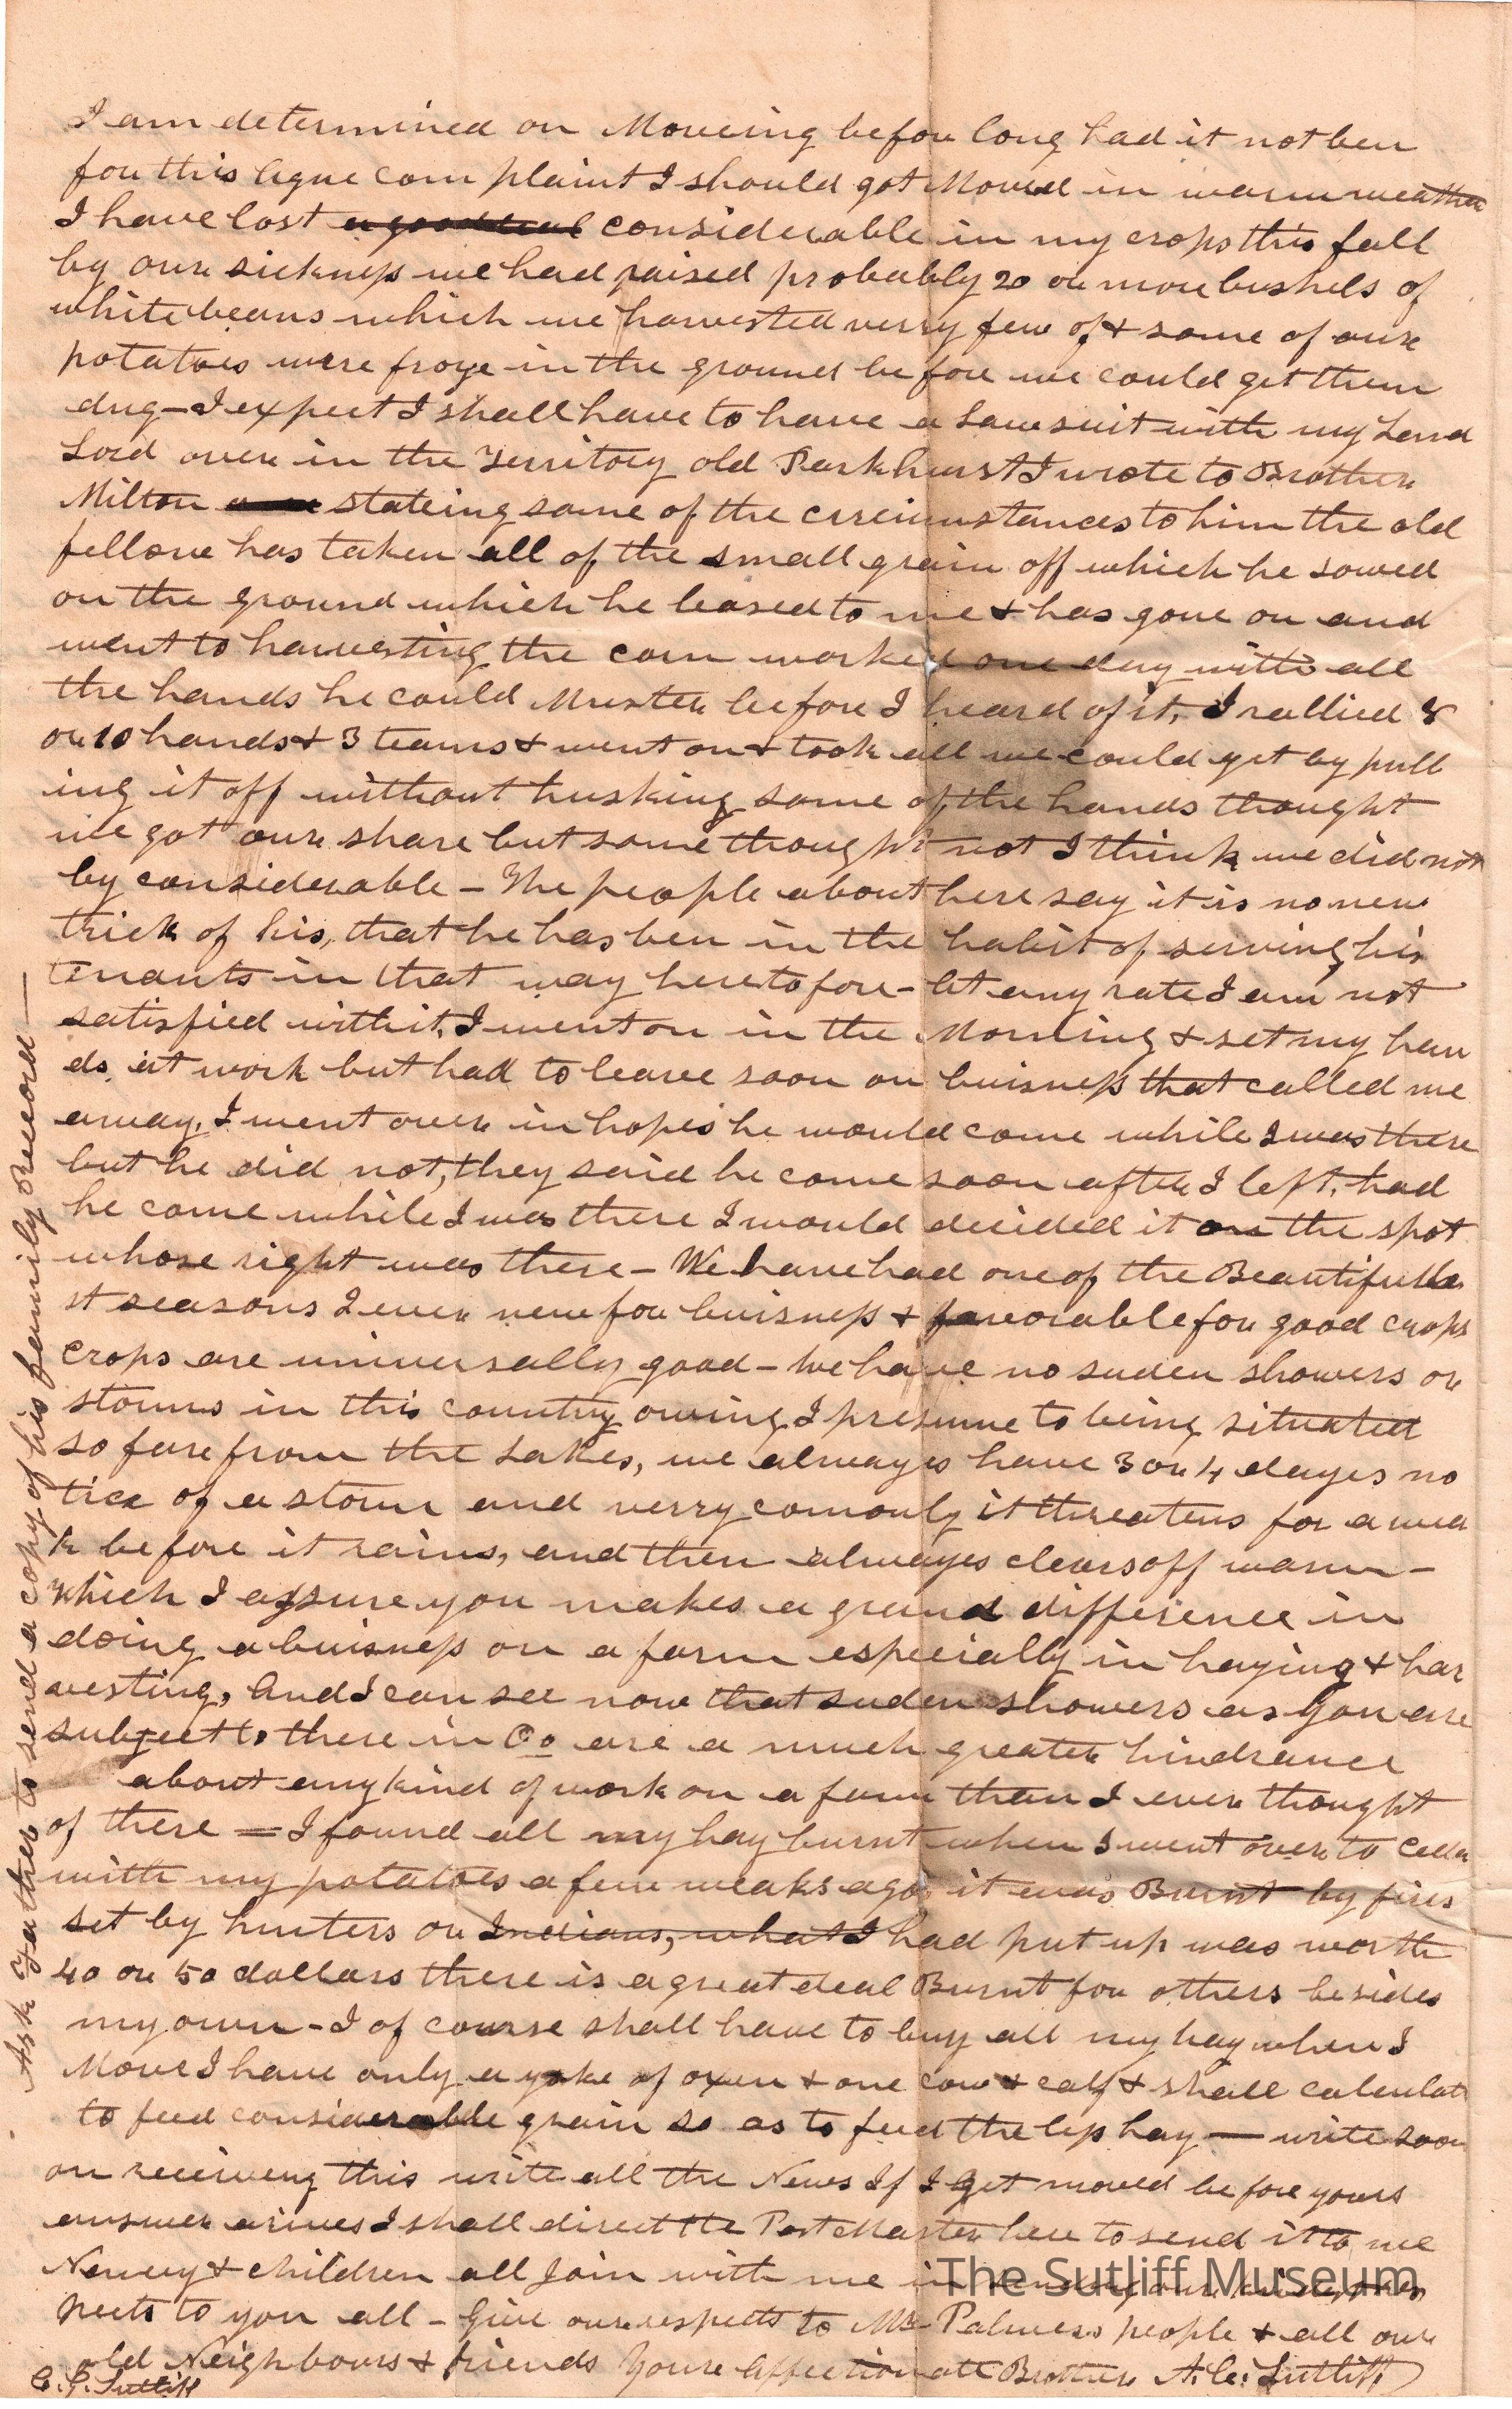 I am determined on Moveing before long had it not ben
for this Ague complaint I should got Moved in warm weather
I have lost a good deal considerable in my crops this fall
by our sickness we had raised probably 20 or more bushels of
white beans which we harvested verry few of & some of our
potatoes were froze in the ground before we could get them
dug - I expect I shall have to have a Lawsuit with my Land
Lord over in the Territory old Parkhurst I wrote to Brother
Milton stateing some of the circumstances to him the old
fellow has taken all of the small grain off which he sowed
on the ground which he leased to me & has gone on and
went to harvesting the corn worked one day with all
the hands he could Muster before I heard of it, I rallied 8
or 10 hands & 3 teams & went on & took all we could get by pull
ing it off without husking some of the hands thought
we got our share but some thought not I think we did not
by considerable - The people about here say it is no new
trick of his, that he has ben in the habit of serving his
tenants in that way heretofore - At any rate I am not
satisfied with it, I went on in the Morning & set my han
ds at work but had to leave soon on buisness that called me
away, I went over in hopes he would come while I was there
but he did not, they said he come soon after I left, had
he come while I was there I would decided it on the spot
whose right was there - We have had one of the Beautifulle
st seasons I ever new for buisness & favorable for good crops
crops are universally good - We have no suden showers or
storms in this country owing I presume to being situated
so fare from the Lakes, we always have 3 or 4 dayes no
tice of a storm and verry comonly it threatens for a wea
k before it rains, and then always clears off warm -
which I assure you makes a grand difference in
doing a buisness on a farm especially in haying & har
vesting, And I can see now that suden showers as you are
subject to there in O. are a much greater hindrance
about any kind of work on a farm than I ever thought
of there = I found all my hay burnt when I went over to Ceder
with my potatoes a few weaks ago it was Burnt by fires
set by hunters or Indians, what I had put up was worth
40 or 50 dollars there is a great deal Burnt for others besides
my own - I of course shall have to buy all my hay when I
Move I have only a yoke of oxen & one cow & calf & shall calculat
to feed considerable grain so as to feed the less hay — write soon
on receiveng this write all the News If I get moved before yours
answer arives I shall direct the Post Master here to send it to me
& children all Join with me in sending our kindest res
pects to you all - Give our respects to Mr Palmers people & all our
old Neighbours & friends Youre Affectionate Brother A. C. Sutliff
C. G. Sutliff
Ask Father to send a copy of his family Record —
The Sutliff Museum